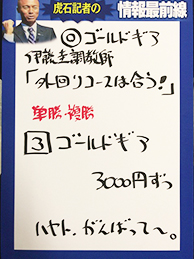 虎石記者の
情報最前線
◎ゴールドギア
伊藤圭調教師
「外回りコースは合う!」
単勝・複勝
3 ゴールドギア
3000円ずつ
ハヤト、がんばって〜。